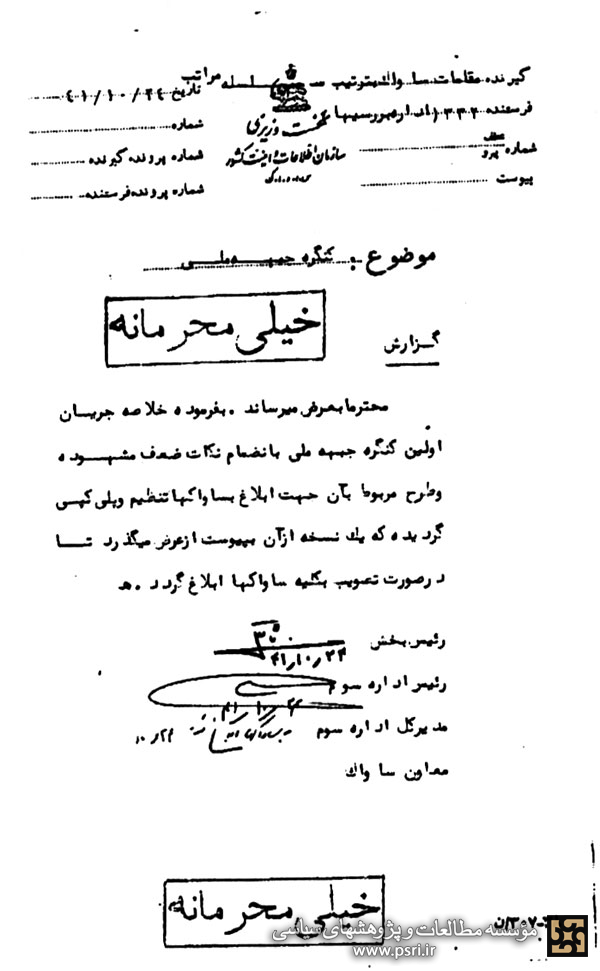 گیرنده مقامات ساواک بترتیب سلسله مراتب
تاریخ ۴۱/۱۰/۲۴
فرستنده اداره بررسیها
شماره
نخست وزیری
شماره پرونده گیرنده
سازمان اطلاعات و امنیت کشور
س.ا.و.ا.ک
شماره
پیوست
شماره پرونده فرستنده
موضوع : کنگره جبهه ملی
خیلی محرمانه
گزارش
محترما بعرض میرساند . بفرموده خلاصه جریان
اولین کنگره جبهه ملی بانضمام نکات ضعف مشهوده
وطرح مربوط بآن جهت ابلاغ بساواکها تنظیم وپلی کپی
گردیده که یک نسخه ازآن بپیوست ازعرض میگذرد تا
درصورت تصویب بکلیه ساواکها ابلاغ گردد . ه
رئیس بخش
۴۱/۱۰/۲۴
رئیس اداره سوم
مدیرکل اداره سوم
معاون ساواک
خیلی محرمانه
مؤسسه مطالعات و پژوهشهای سیاسی
www.psri.ir